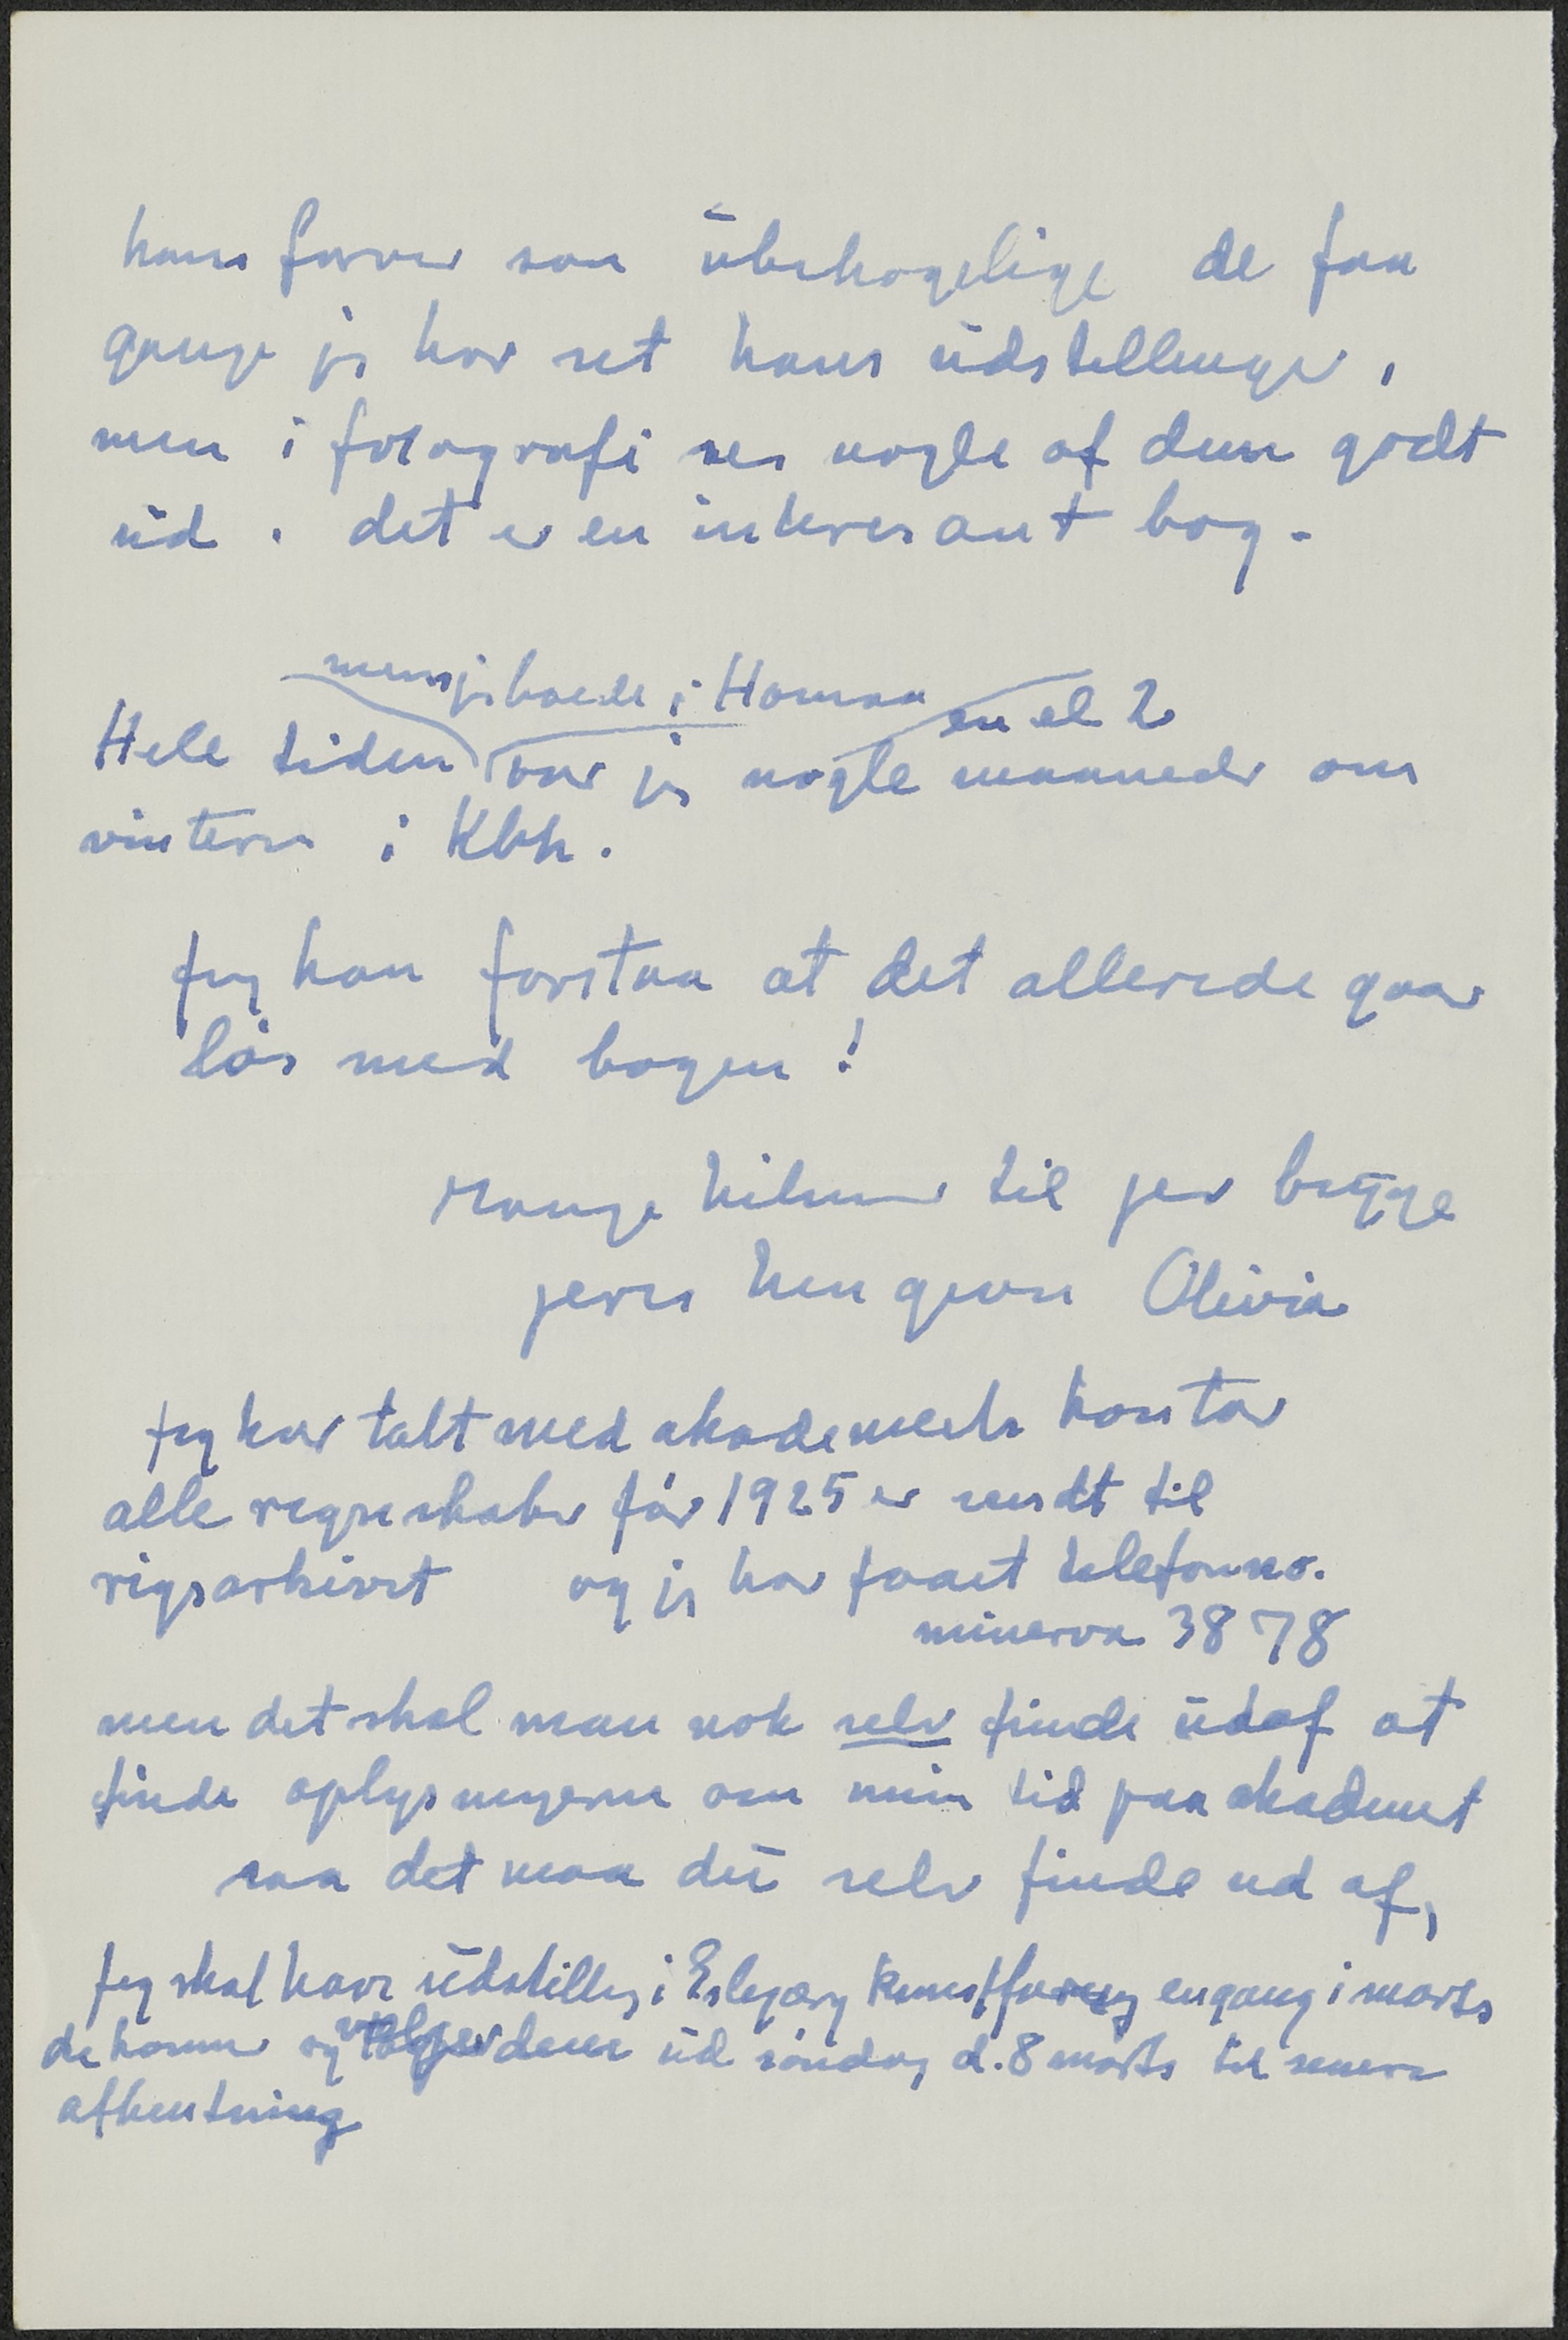 hans farver saa übehagelige de faa
gange jeg har set hans üdstillinger,
men i fotografi ser nogle af dem godt
üd. det er en interesant bog.
mens jeg boede i Hornaa en el 2
Hele tiden var jeg nogle maaneder om
vinteren i Kbh.
Jeg kan forstaa at det allerede gaar
løs med bogen!
Mange hilsner til jer begge
jeres hengivne Olivia
Jeg har talt med akademiets kontor
alle regnskaber før 1925 er sendt til
rigsarkivet og jeg har faaet telefonno.
minerva 3878
men det skal man nok selv finde üdaf at
finde oplysningerne om min tid paa akademiet
saa det maa dü selv finde ud af,
Jeg skal have üdstilling i Kunstforening engang i marts
de kommer og vælger dem üd søndag d. 8 marts til senere
afhentning